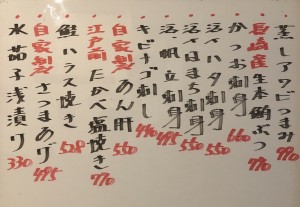 蒸しアワビつまみ 990
長崎産生本鮪ぶつ 770
かつお刺身 660
活〆ハタ刺身
活〆はまち刺身 550
活帆立刺身 495
キビナゴ刺し 440
自家製あん肝 550
江戸前たかべ塩焼き 770
鮭ハラス焼き 528
自家製さつまあげ 495
水茄子浅漬り 330